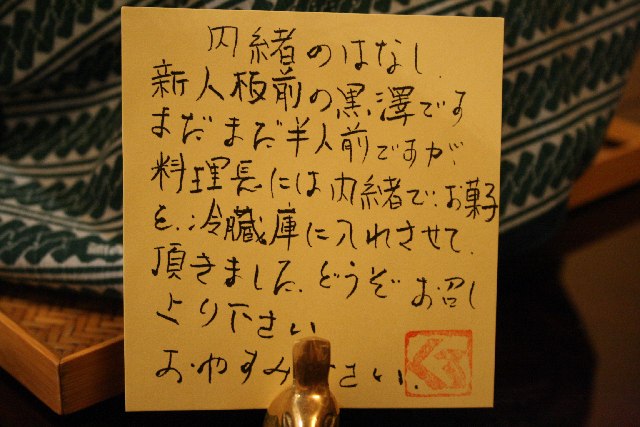 内緒のはなし.
新人板前の黒澤です
まだまだ半人前ですが
料理長には内緒で、お菓子
を、冷臓庫に入れさせて
頂きました、どうぞお召し
とり下さい
おやすみさい.
くろ